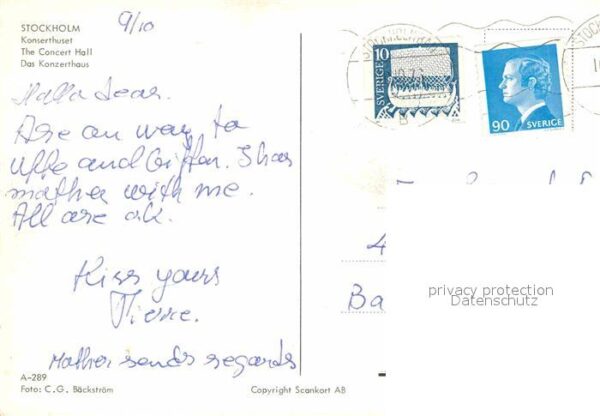 STOCKHOLM
Konserthuset
The Concert Hall
Das Konzerthaus
9/10
Hallo dear.
Are on way to
Uffe and Gitten. I have
mather with me.
All are ok.
Kiss yours
Pierre.
Mather sends regards
A-289
Foto: C.G. Bäckström
Copyright Scankort AB
SVERIGE 10
90 SVERIGE
STOCKHOLM
B
4
Ba
privacy protection
Datenschutz